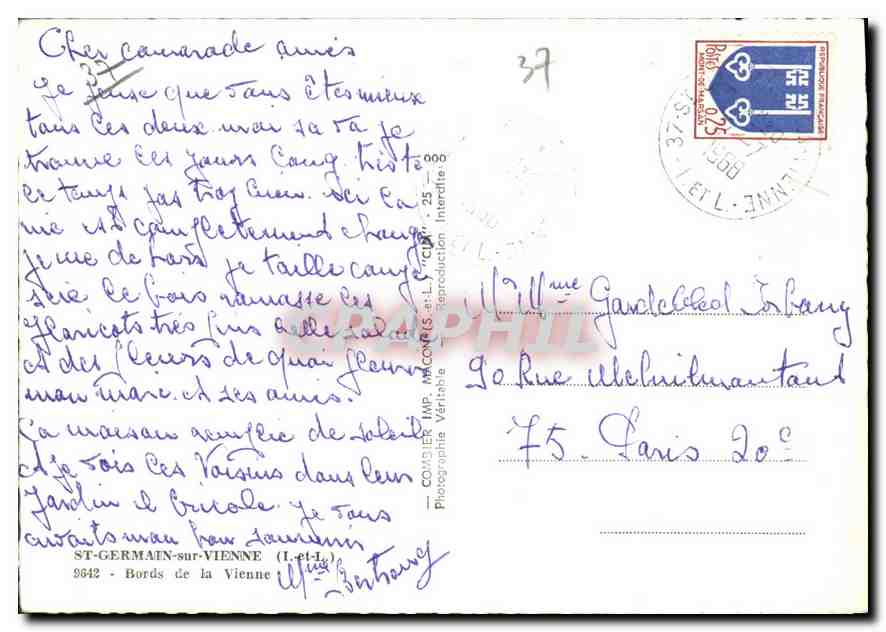 Cher camarade amis
Je pense que vous êtes mieux
tous les deux moi sa va je
trouve les jours long triste
le temps pas trop bien ici la
vie est completement change
je me de hors je taille coupe
scie le bois ramasse les
Haricots très fins belle salade
et des fleurs de quoi fleurir
mon mari et ses amis.
la maison remplie de soleil
et je vois les Voisins dans leur
Jardin il bricole je vous
mon bon souvenir
Mme
37
37
POSTES
RÉPUBLIQUE FRANÇAISE
MONT-DE-MARSAN
0,25
1968
I. ET L.
VIENNE
M Mme
90 Rue Melnilmontant
75. Paris 20e
— COMBIER IMP. MACON (S.-et-L.) "CIM" - 25 - 000
Photographie Véritable - Reproduction Interdite
CPAPHIL
ST-GERMAIN-sur-VIENNE (I.-et-L.)
9642 - Bords de la Vienne